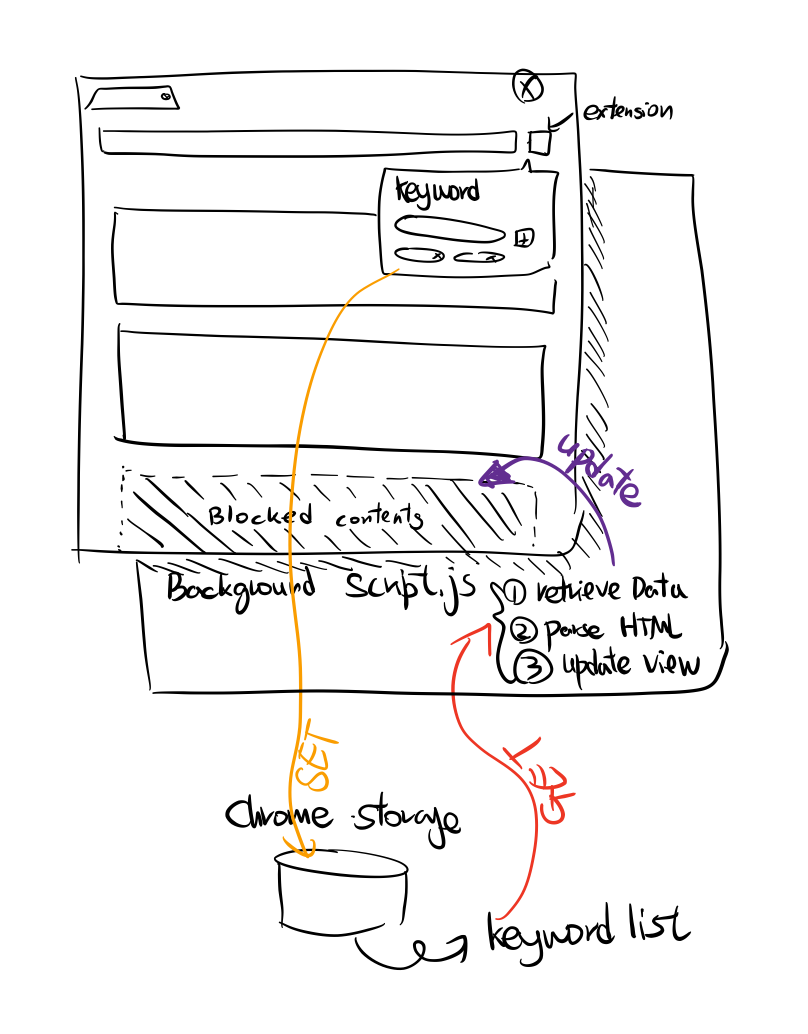 extension
keyword
update
Blocked contents
Background Script.js
① retrieve Data
② parse HTML
③ update view
SET
GET
Chrome storage
keyword list